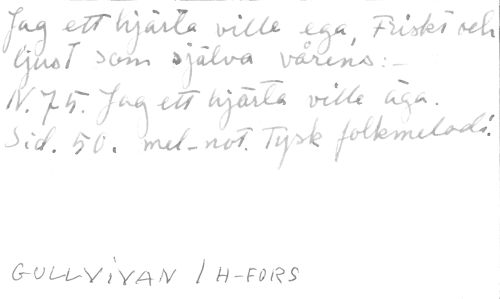 Jag ett hjärta ville ega, Friskt och
ljust som själva vårens:-
N. 75. Jag ett hjärta ville äga.
Sid. 50. mel-not. Tysk folkmelodi.
GULLVIVAN / H-FORS